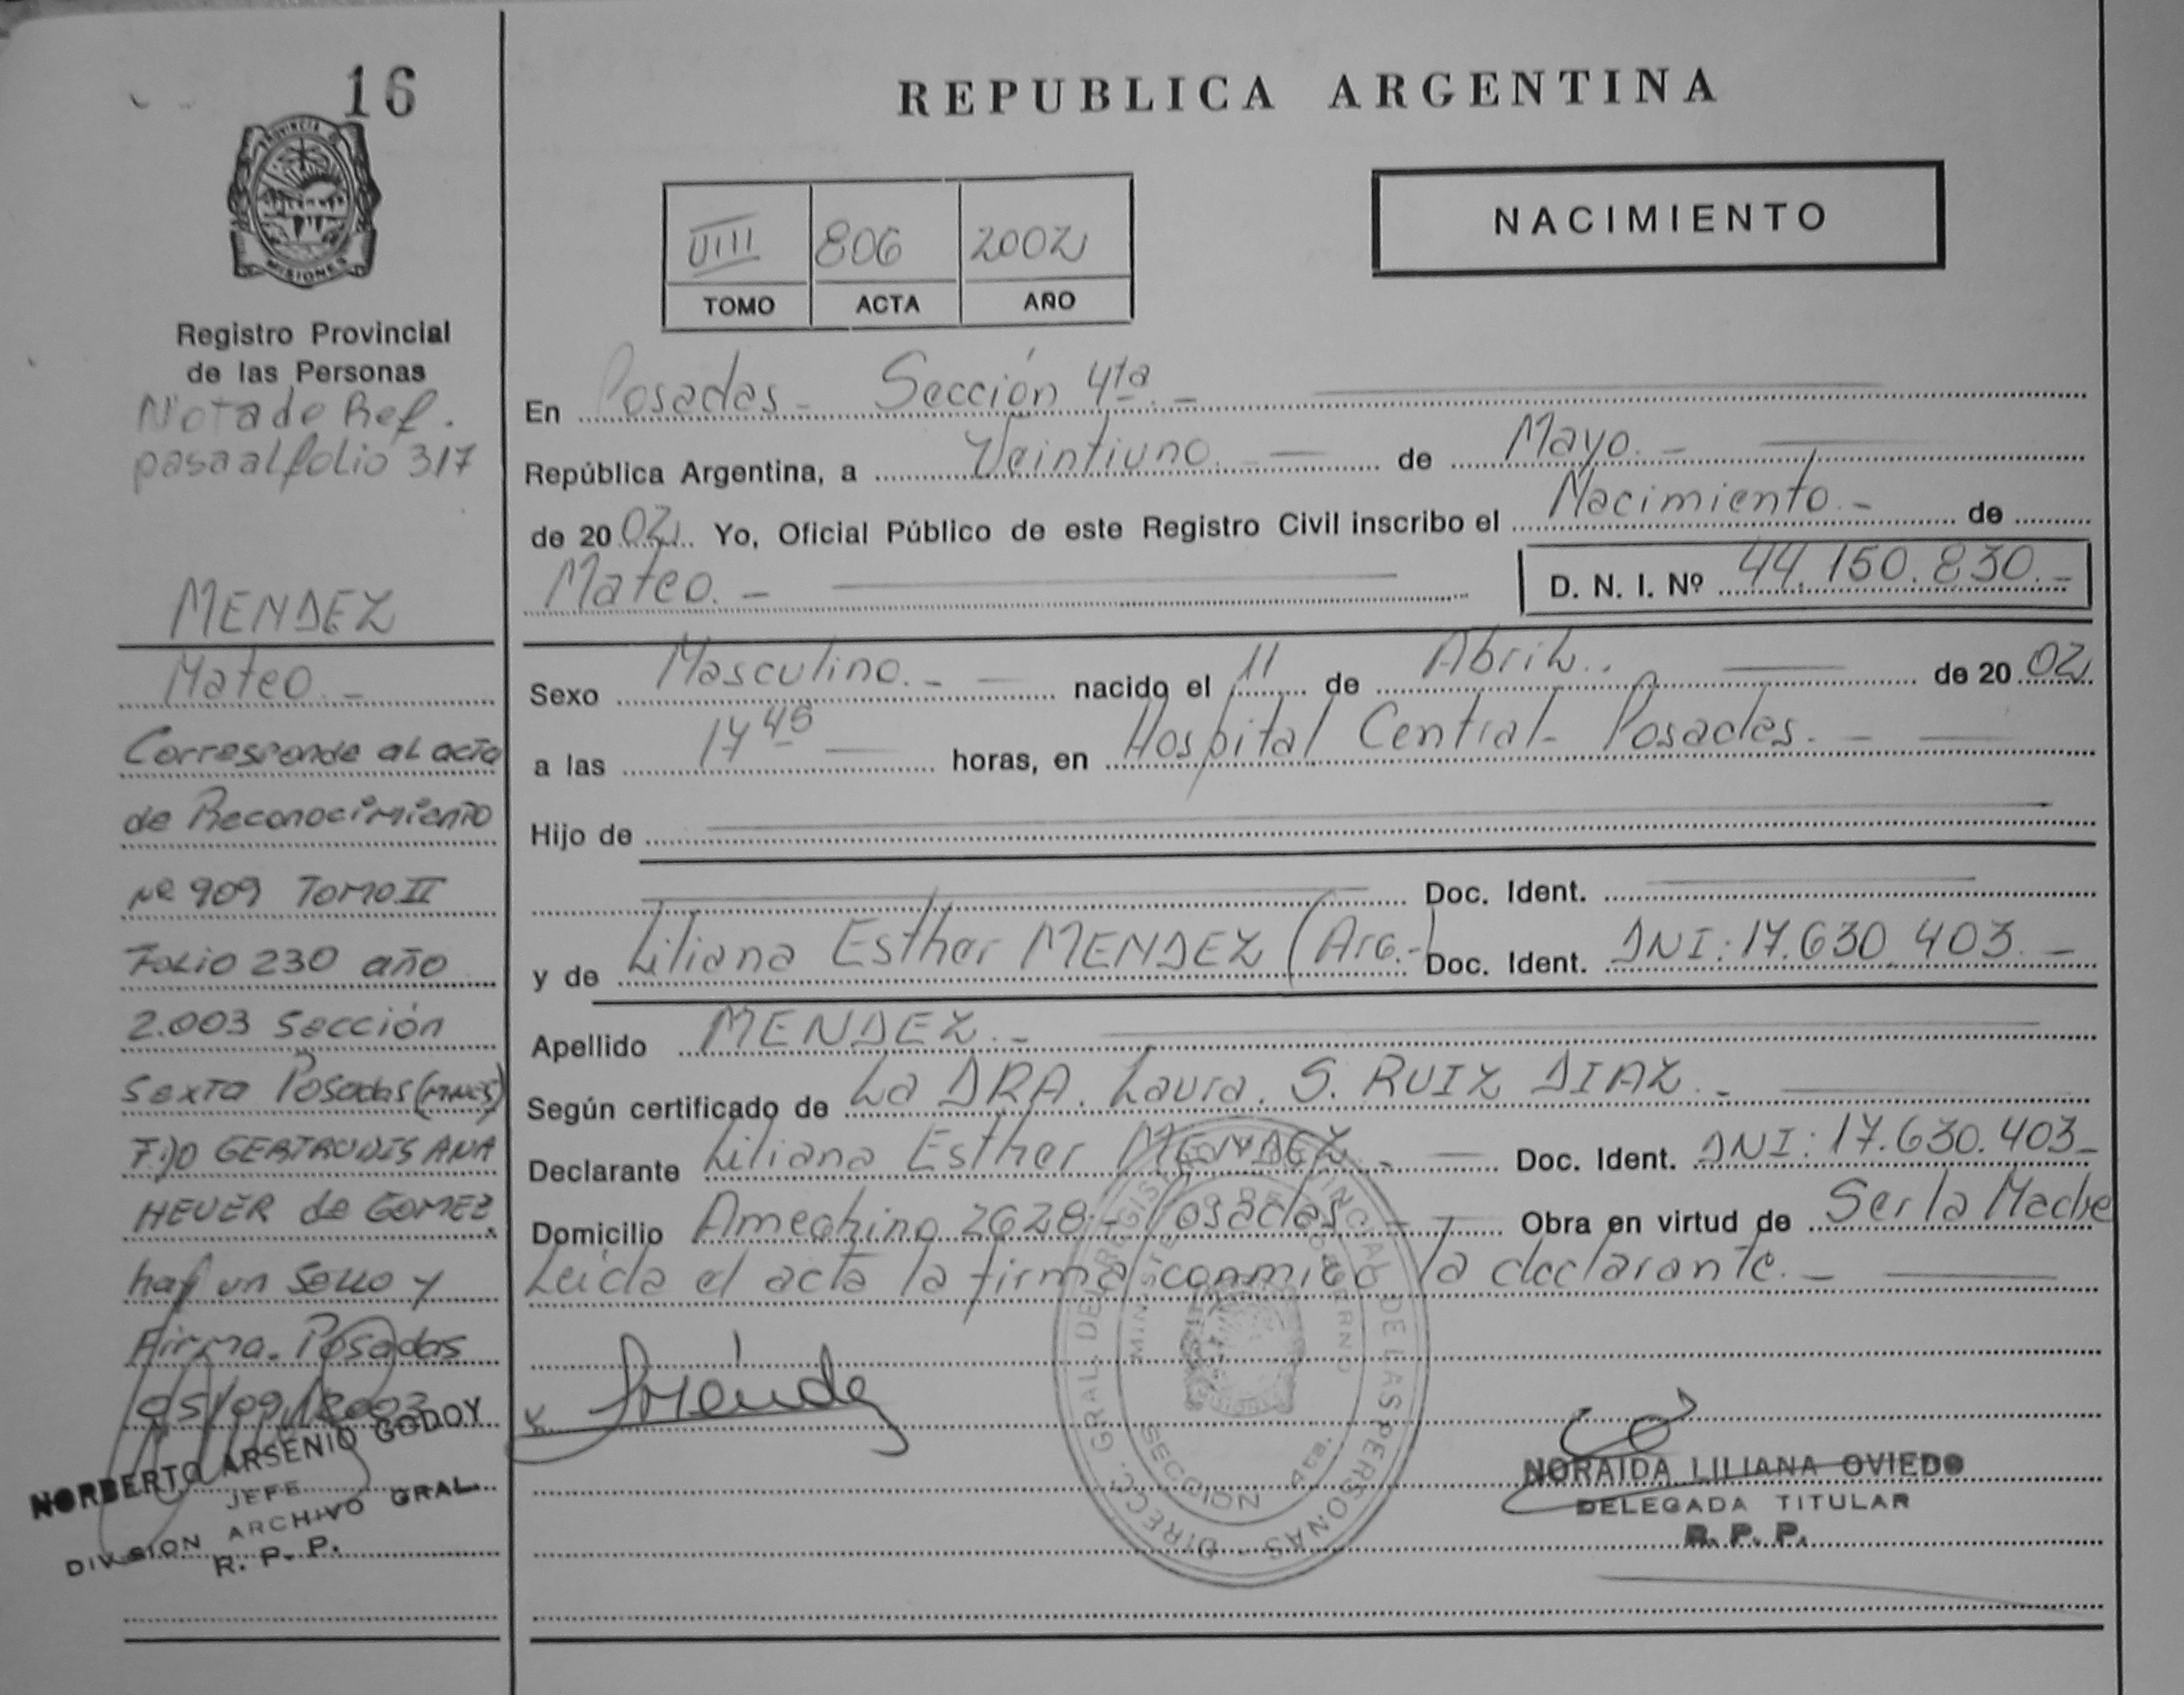 16
PROVINCIA DE
MISIONES
Registro Provincial
de las Personas
Nota de Ref.
pasa al folio 317
MENDEZ
Mateo.-
Corresponde al acta
de Reconocimiento
Nº 909 Tomo II
Folio 230 año
2.003 Sección
Sexta Posadas (MNES)
F.DO GERTRUDIS ANA
HEUER de GOMEZ.
hay un Sello y
Firma. Posadas
05/09/2003
NORBERTO ARSENIO GODOY
JEFE
DIVISION ARCHIVO GRAL.
R. P. P.
REPUBLICA ARGENTINA
NACIMIENTO
VIII 806 2002
TOMO ACTA AÑO
En Posadas - Sección 4ta.-
República Argentina, a Veintiuno.- de Mayo.-
de 2002. Yo, Oficial Público de este Registro Civil inscribo el Nacimiento.- de
Mateo.- D. N. I. Nº 44.150.830.-
Sexo Masculino.- nacido el 11 de Abril.. de 2002
a las 14 45 horas, en Hospital Central- Posadas.-
Hijo de
Doc. Ident.
y de Liliana Esther MENDEZ (Arg.-) Doc. Ident. DNI: 17.630.403.-
Apellido MENDEZ.-
Según certificado de La DRA. Laura. S. RUIZ DIAZ.-
Declarante Liliana Esther MENDEZ.- Doc. Ident. DNI: 17.630.403-
Domicilio Ameghino 2628- Posadas.- Obra en virtud de Ser la Madre
Leida el acta la firma conmigo la declarante.-
x Méndez
DIRECC. GRAL. DEL REGISTRO PROVINCIAL DE LAS PERSONAS -
MINISTERIO DE GOBIERNO
SECCION 4ta.
NORAIDA LILIANA OVIEDO
DELEGADA TITULAR
R. P. P.